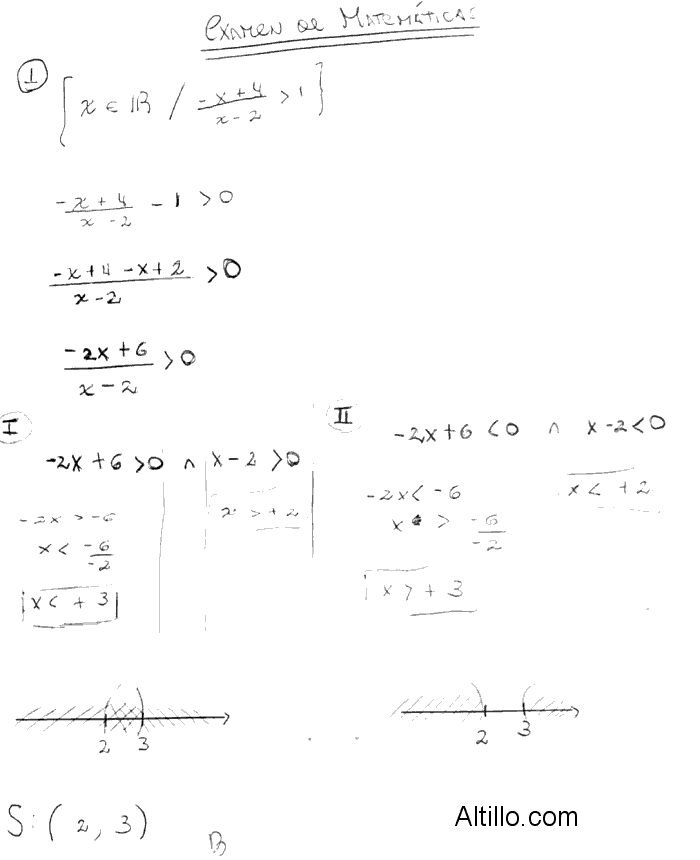 EXAMEN DE MATEMÁTICAS
1
{ x ∈ IR / (-x+4)/(x-2) > 1 }
(-x+4)/(x-2) - 1 > 0
(-x+4-x+2)/(x-2) > 0
(-2x+6)/(x-2) > 0
I
-2x+6 > 0 ∧ x-2 > 0
-2x > -6
x > +2
x < -6/-2
x < +3
II
-2x+6 < 0 ∧ x-2 < 0
-2x < -6
x < +2
x > -6/-2
x > +3
2 3
2 3
S: (2, 3)
B
Altillo.com